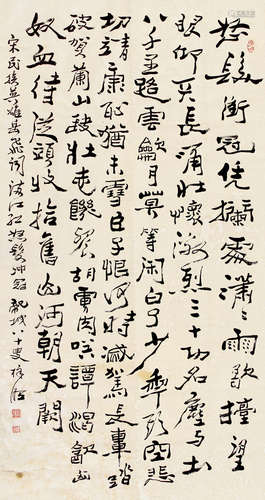 怒髮衝冠凭欄處瀟瀟雨歇擡望
眼仰天長嘯壯懷激烈三十功名塵與土
八千里路雲龢月莫等閑白了少年頭空悲
切靖康恥猶未雪臣子恨何時滅駕長車踏
破賀蘭山缺壯志飢餐胡虜肉笑談渴飲匈
奴血待從頭收拾舊山河朝天闕
宋民族英雄岳飛詞滿江紅怒髮冲冠 八十叟